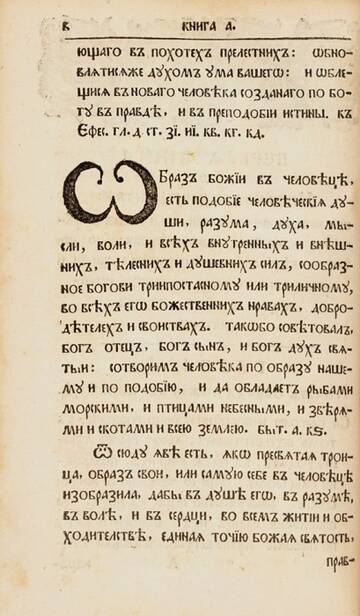 в КНИГА А.
ющаго въ похотехъ прелестних: ѡбно-
влѧтисѧже дꙋхомъ ꙋма вашегѡ: и ѡбле-
щисѧ въ новаго человѣка созданаго по бо-
гꙋ въ правдѣ, и въ преподобїи истины. къ
Ефес. гл. д ст. зі. иі. кв. кг. кд.
Ѡбразъ божїи въ человѣцѣ,
есть подобїе человѣческїѧ дꙋ-
ши, разꙋма, дꙋха, мы-
сли, воли, и всѣхъ внꙋтренныхъ и внѣш-
нихъ, тѣлеснихъ и дꙋшевнихъ силъ, сообраз-
ное богови трииѵпостасномꙋ или триличномꙋ,
во всѣхъ егѡ божественнихъ нравахъ, добро-
дѣтелехъ и своиствахъ. такѡбо совѣтовалъ
богъ отецъ, богъ сынъ, и богъ дꙋхъ свѧ-
тыи: сотворимъ человѣка по образꙋ наше-
мꙋ и по подобїю, и да обладаетъ рыбами
морскими, и птицами небесными, и звѣрѧ-
ми и скотами и всею землею. быт. а. кѕ.
Ѿ сюдꙋ ꙗвѣ есть, ꙗкѡ пресвѧтаѧ трои-
ца, образъ свои, или самꙋю себе въ человѣцѣ
изобразила, дабы въ дꙋшѣ егѡ, въ разꙋмѣ,
въ волѣ, и въ сердци, во всемъ житїи и об-
ходителствѣ, единаѧ точїю божаѧ свѧтость,
прав-